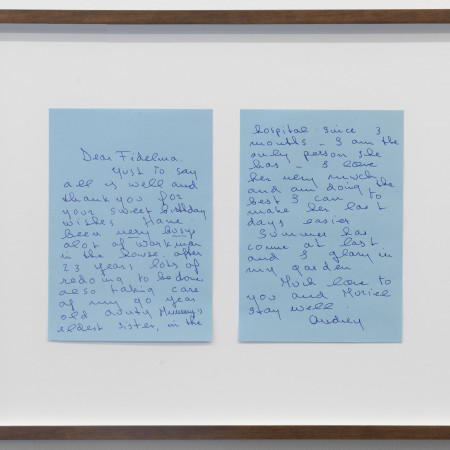 Dear Fidelma.
Just to say
all is well and
thank you for
your sweet birthday
wishes. Have
been very busy
alot of workmen
in the house. after
23 years, lots of
redoing to be done
also taking care
of my 90 year
old aunty Mummy's
eldest sister, in the
hospital since 3
months - I am the
only person she
has - I love
her very much
and am doing the
best I can to
make her last
days easier
Summer has
come at last
and I glory in
my garden
Much love to
you and Muriel
stay well.
Audrey